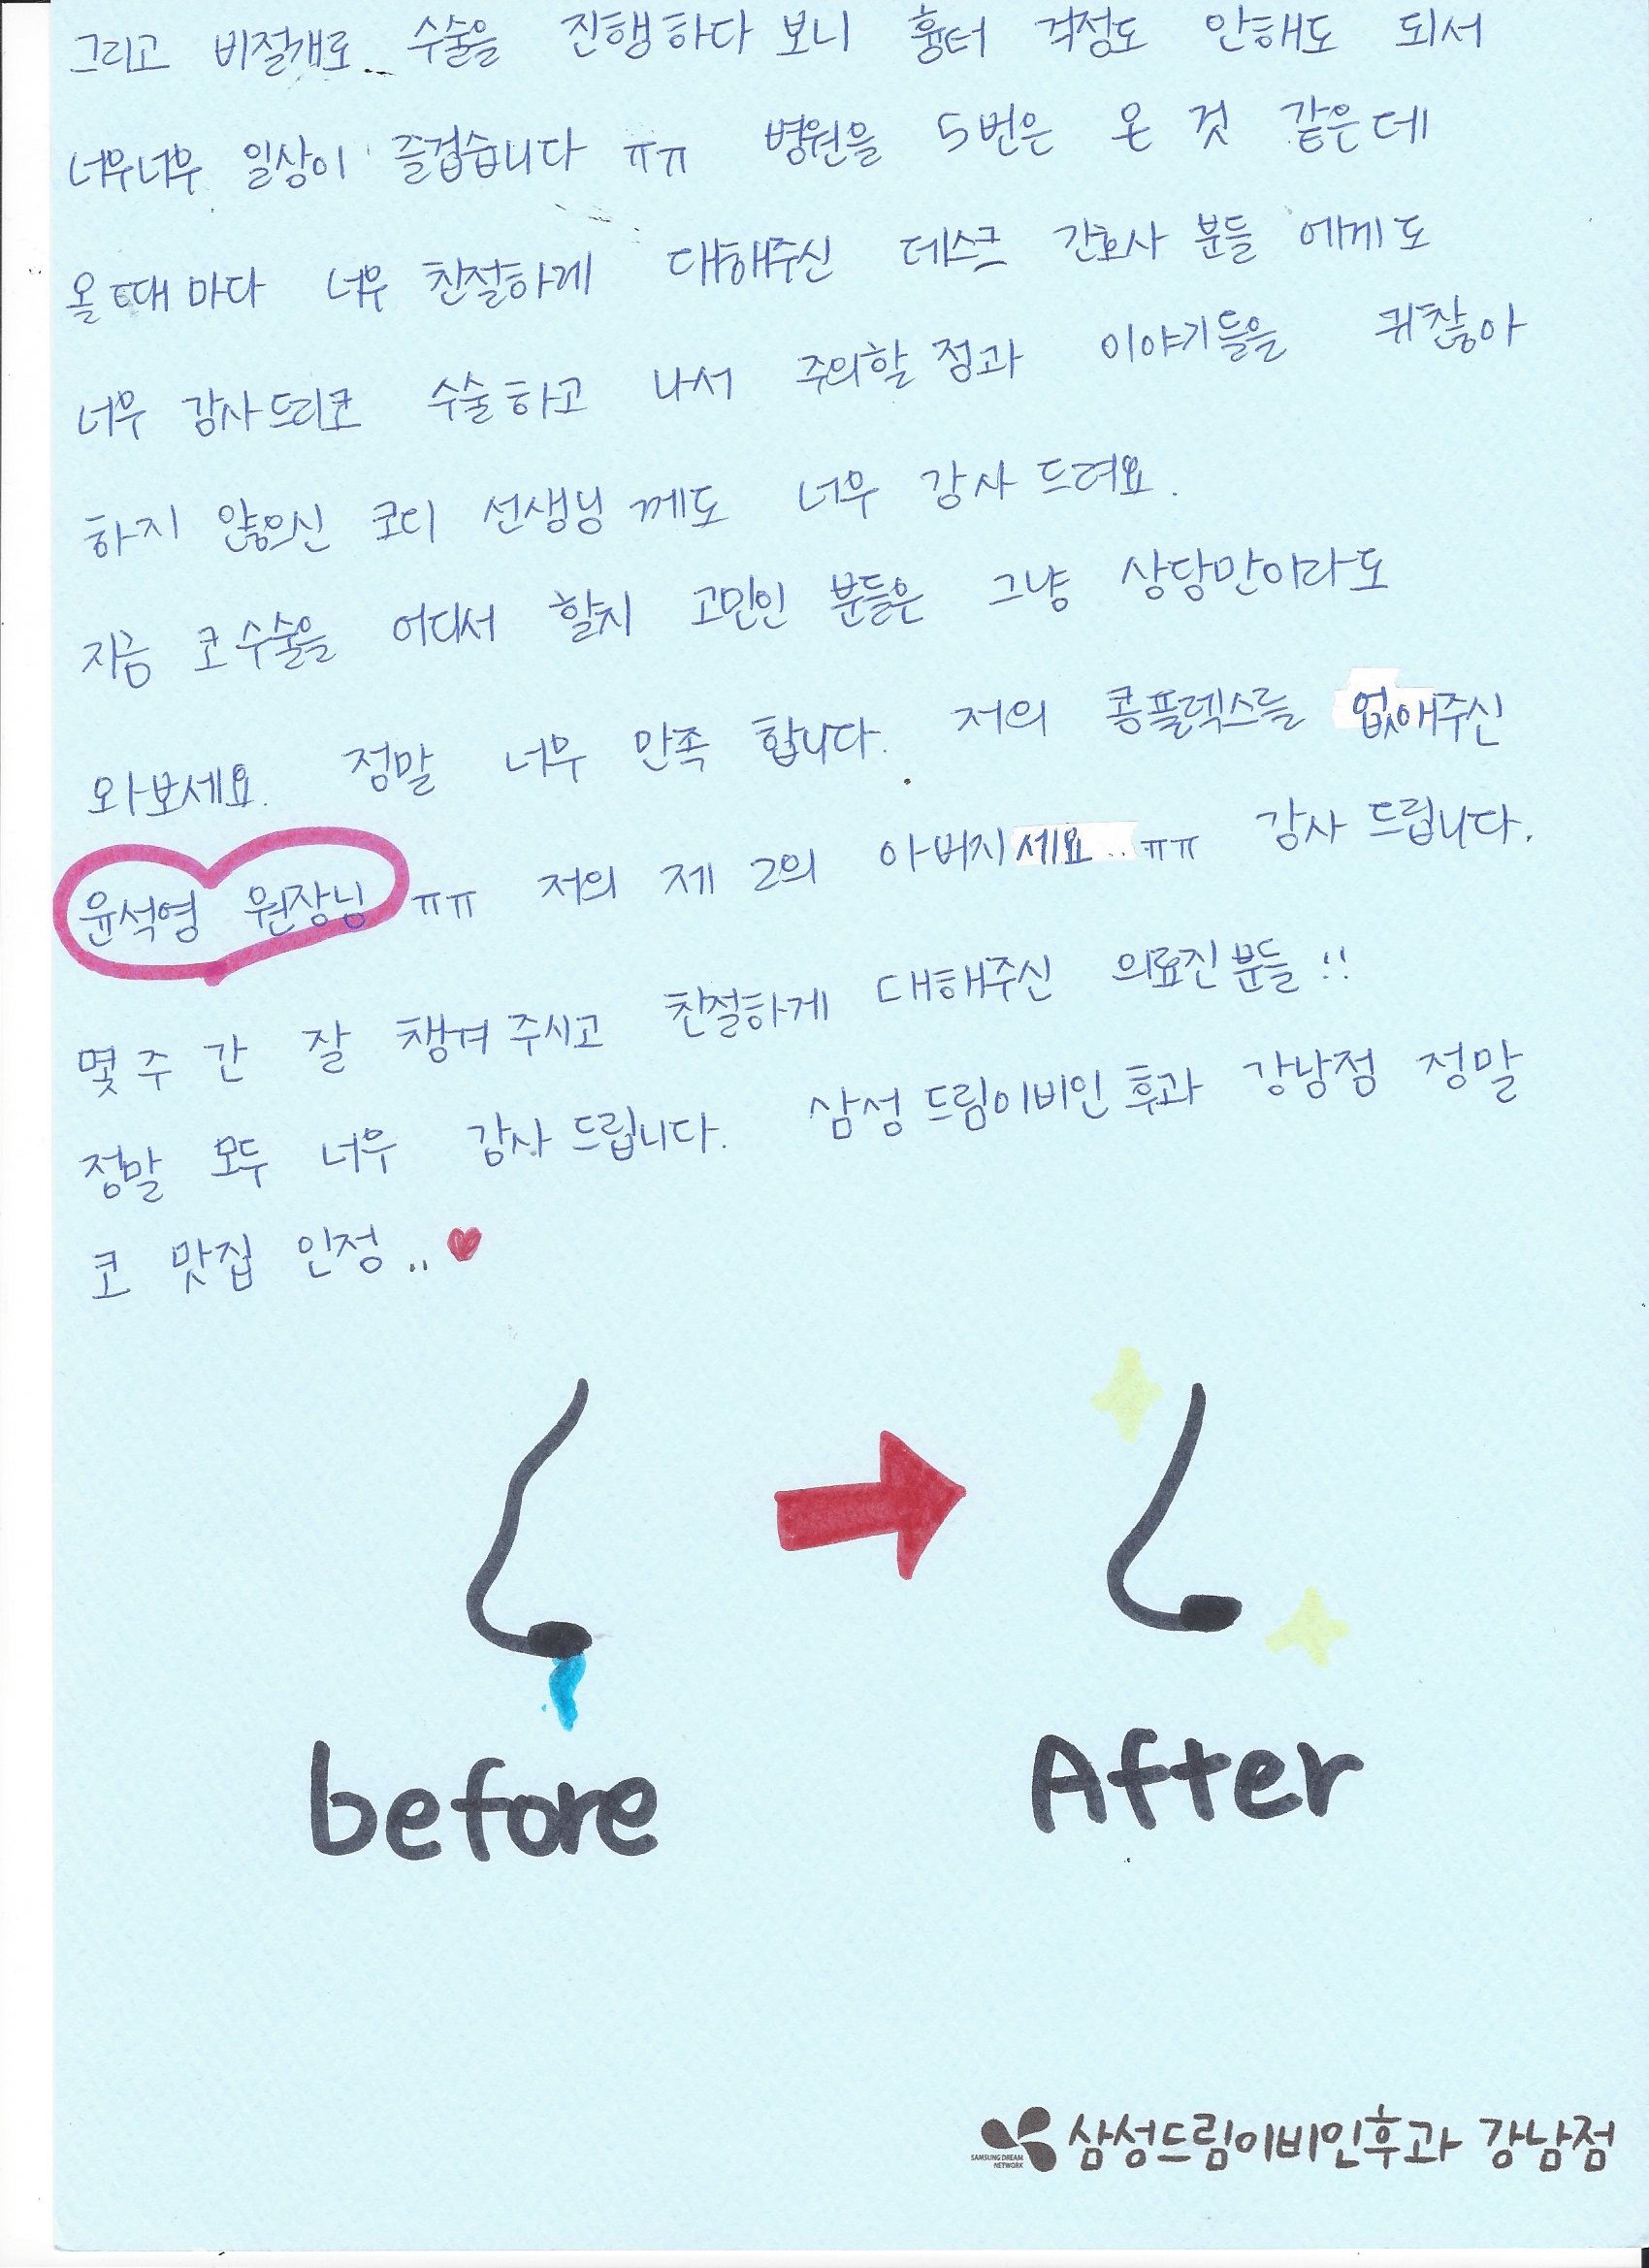 그리고 비절개로 수술을 진행하다 보니 흉터 걱정도 안해도 되서
너무너무 일상이 즐겁습니다 ㅠㅠ 병원을 5번은 온 것 같은데
올때마다 너무 친절하게 대해주신 데스크 간호사 분들 에게도
너무 감사드리고 수술하고 나서 주의할 점과 이야기들을 귀찮아
하지 않으신 코디 선생님 께도 너무 감사 드려요.
지금 코수술을 어디서 할지 고민인 분들은 그냥 상담만이라도
와보세요. 정말 너무 만족 합니다. 저의 콤플렉스를 없애주신
윤석영 원장님 ㅠㅠ 저의 제 2의 아버지세요.. ㅠㅠ 감사 드립니다.
몇 주 간 잘 챙겨 주시고 친절하게 대해주신 의료진분들!!
정말 모두 너무 감사 드립니다. 삼성드림이비인후과 강남점 정말
코 맛집 인정..♥
before After
SAMSUNG DREAM NETWORK 삼성드림이비인후과 강남점